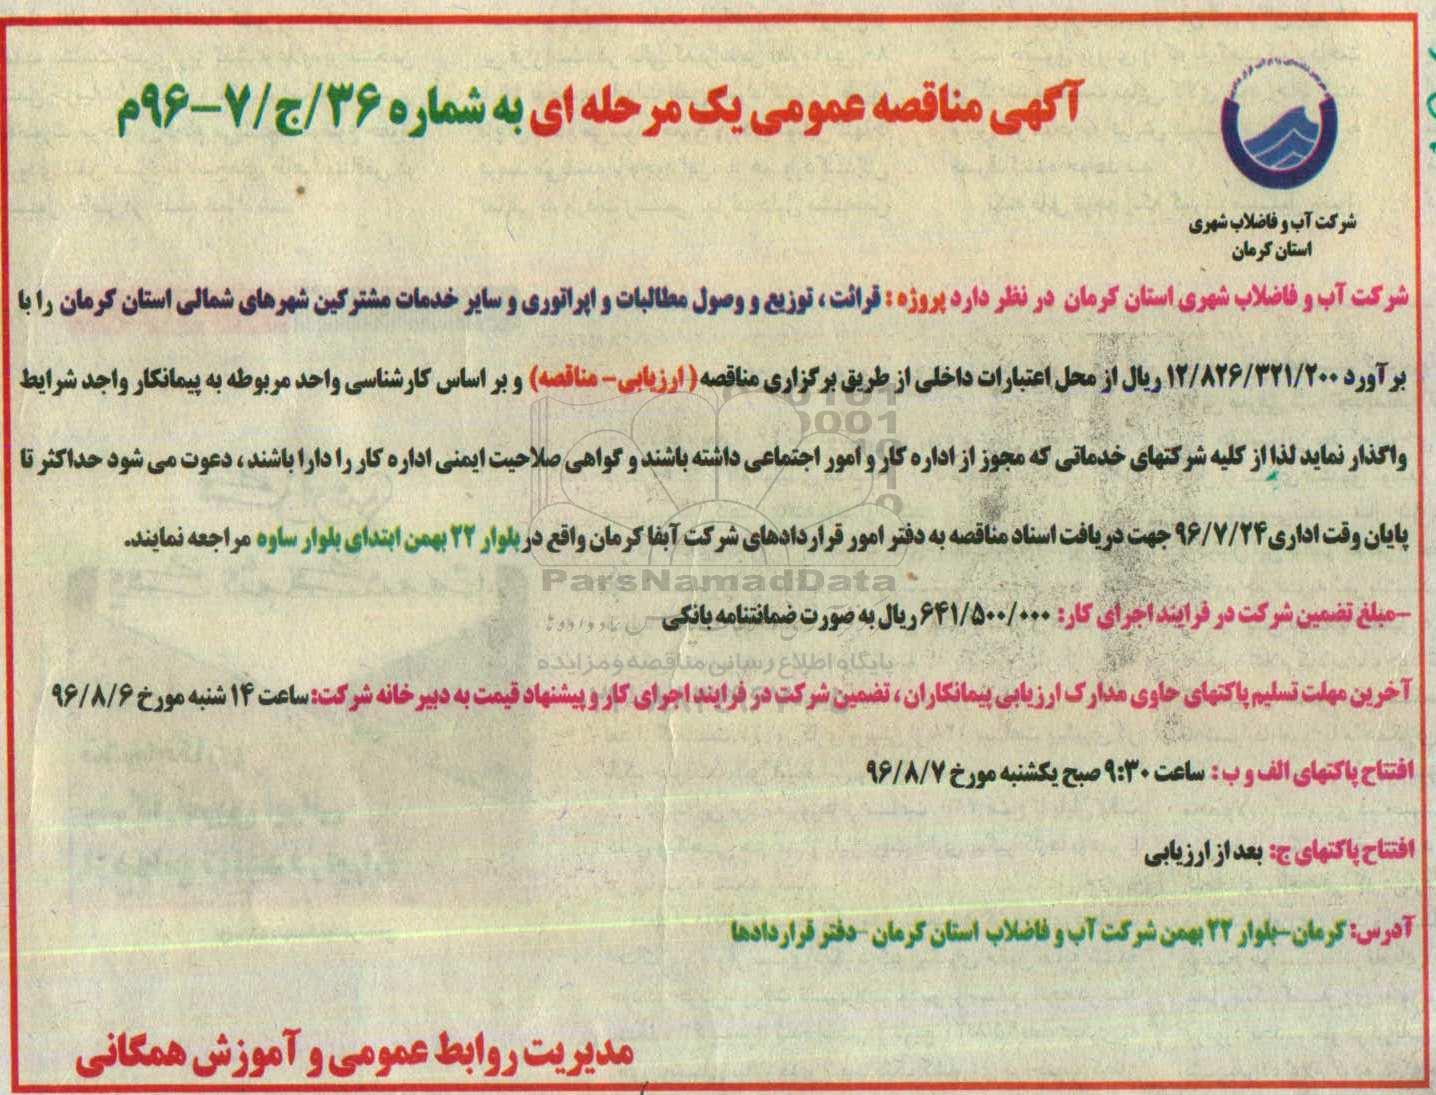 آگهی مناقصه عمومی یک مرحله ای به شماره ۳۶/ج/۷-۹۶م
شرکت آب و فاضلاب شهری
استان کرمان
شرکت آب و فاضلاب شهری استان کرمان در نظر دارد پروژه : قرائت ، توزیع و وصول مطالبات و اپراتوری و سایر خدمات مشترکین شهرهای شمالی استان کرمان را با
برآورد ۱۲/۸۲۶/۳۲۱/۲۰۰ ریال از محل اعتبارات داخلی از طریق برگزاری مناقصه ( ارزیابی- مناقصه) و بر اساس کارشناسی واحد مربوطه به پیمانکار واجد شرایط
واگذار نماید لذا از کلیه شرکتهای خدماتی که مجوز از اداره کار و امور اجتماعی داشته باشند و گواهی صلاحیت ایمنی اداره کار را دارا باشند ، دعوت می شود حداکثر تا
پایان وقت اداری ۹۶/۷/۲۴ جهت دریافت اسناد مناقصه به دفتر امور قراردادهای شرکت آبفا کرمان واقع در بلوار ۲۲ بهمن ابتدای بلوار ساوه مراجعه نمایند.
-مبلغ تضمین شرکت در فرایند اجرای کار: ۶۴۱/۵۰۰/۰۰۰ ریال به صورت ضمانتنامه بانکی
آخرین مهلت تسلیم پاکتهای حاوی مدارک ارزیابی پیمانکاران ، تضمین شرکت در فرایند اجرای کار و پیشنهاد قیمت به دبیرخانه شرکت: ساعت ۱۴ شنبه مورخ ۹۶/۸/۶
افتتاح پاکتهای الف و ب : ساعت ۹:۳۰ صبح یکشنبه مورخ ۹۶/۸/۷
افتتاح پاکتهای ج: بعد از ارزیابی
آدرس: کرمان-بلوار ۲۲ بهمن شرکت آب و فاضلاب استان کرمان -دفتر قراردادها
مدیریت روابط عمومی و آموزش همگانی
ParsNamadData
پایگاه اطلاع رسانی مناقصه و مزایده